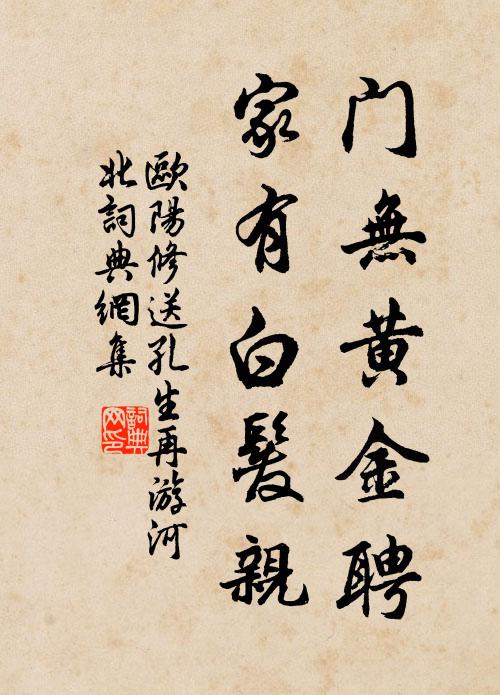 门無黄金聘
家有白髮親
歐陽修送孔生再游河
北詞典網集
詞典
网印